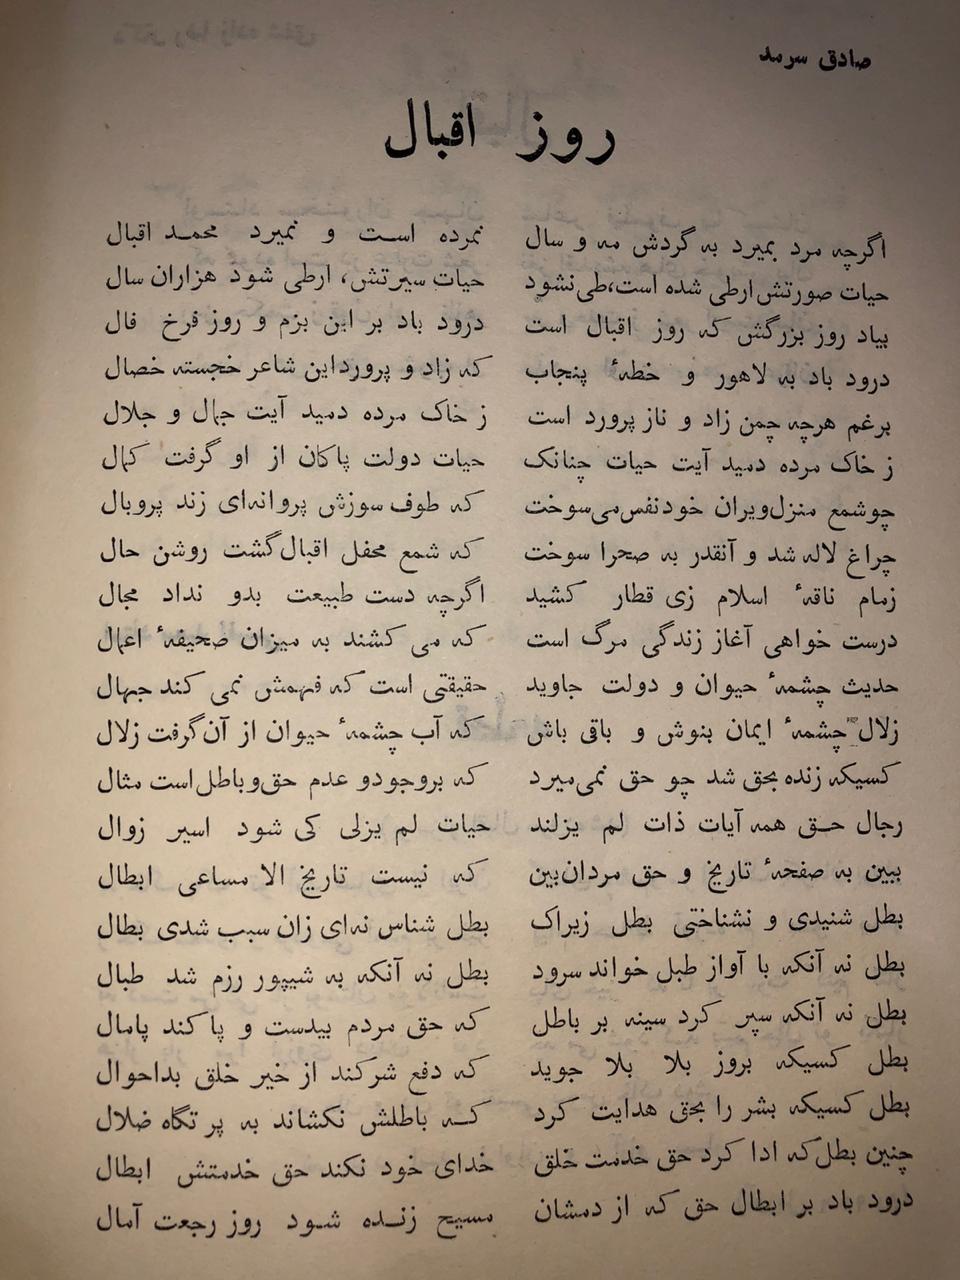 صادق سرمد
روز اقبال
اگرچه مرد بمیرد به گردش مه و سال نمرده است و نمیرد محمد اقبال
حیات صورتش ارطی شده است،طی نشود حیات سیرتش، ارطی شود هزاران سال
بیاد روز بزرگش که روز اقبال است درود باد بر این بزم و روز فرخ فال
درود باد به لاهور و خطهٔ پنجاب که زاد و پرورداین شاعر خجسته خصال
برغم هرچه چمن زاد و ناز پرورد است ز خاک مرده دمید آیت جمال و جلال
ز خاک مرده دمید آیت حیات چنانک حیات دولت پاکان از او گرفت کمال
چوشمع منزل‌ویران خودنفس‌می‌سوخت که طوف سوزش پروانه‌ای زند پروبال
چراغ لاله شد و آنقدر به صحرا سوخت که شمع محفل اقبال‌گشت روشن حال
زمام ناقهٔ اسلام زی قطار کشید اگرچه دست طبیعت بدو نداد مجال
درست خواهی آغاز زندگی مرگ است که می کشند به میزان صحیفهٔ اعمال
حدیث چشمهٔ حیوان و دولت جاوید حقیقتی است که فهمش نمی کند جهال
زلال چشمهٔ ایمان بنوش و باقی باش که آب چشمهٔ حیوان از آن‌گرفت زلال
کسیکه زنده بحق شد چو حق نمی‌میرد که بروجودو عدم حق‌وباطل‌است مثال
رجال حق همه آیات ذات لم یزلند حیات لم یزلی کی شود اسیر زوال
ببین به صفحهٔ تاریخ و حق مردان‌بین که نیست تاریخ الا مساعی ابطال
بطل شنیدی و نشناختی بطل زیراک بطل شناس نه‌ای زان سبب شدی بطال
بطل نه آنکه با آواز طبل خواند سرود بطل نه آنکه به شیپور رزم شد طبال
بطل نه آنکه سپر کرد سینه بر باطل که حق مردم بیدست و پا کند پامال
بطل کسیکه بروز بلا بلا جوید که دفع شرکند از خیر خلق بداحوال
بطل کسیکه بشر را بحق هدایت کرد که باطلش نکشاند به پرتگاه ضلال
چنین بطل‌که ادا کرد حق خدمت خلق خدای خود نکند حق خدمتش ابطال
درود باد بر ابطال حق که از دمشان مسیح زنده شود روز رجعت آمال